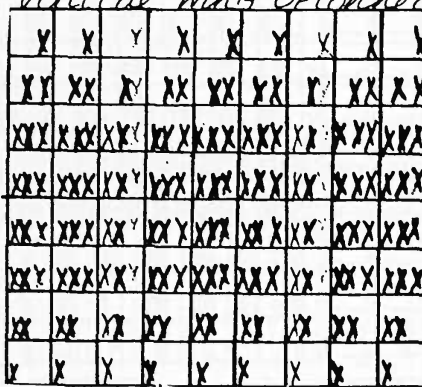 X X X X X X X X X
XX XX XX XX XX XX XX XX XX
XXX XXX XXX XXX XXX XXX XXX XXX XXX
XXX XXX XXX XXX XXX XXX XXX XXX XXX
XXX XXX XXX XXX XXX XXX XXX XXX XXX
XXX XXX XXX XXX XXX XXX XXX XXX XXX
XX XX XX XX XX XX XX XX XX
X X X X X X X X X